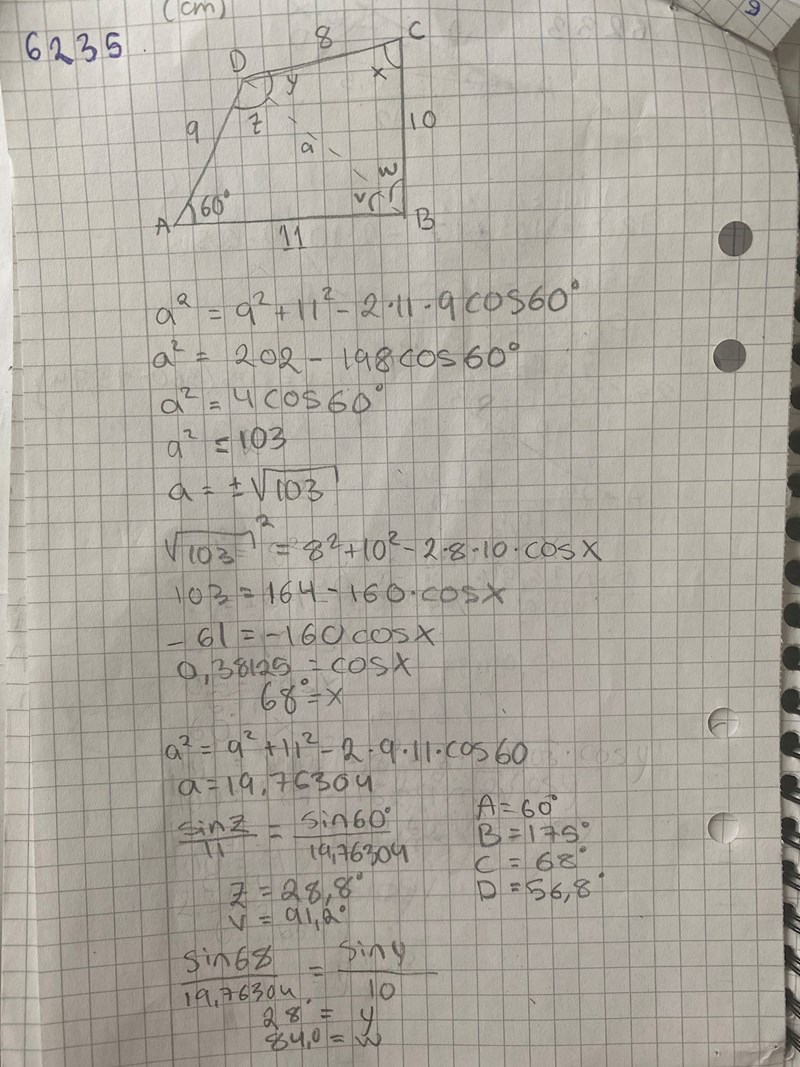 (cm)
6235.
8
C
D
y
x
9
z
a
10
w
v
A
60°
B
11
a² = 9² + 11² - 2·11·9 cos60°
a² = 202 - 198 cos60°
a² = 4 cos60°
a² = 103
a = ±√103
√103² = 8² + 10² - 2·8·10·cosx
103 = 164 - 160·cosx
-61 = -160 cosx
0,38125 = cosx
68° = x
a² = 9² + 11² - 2·9·11·cos60
a = 19,76304
sinz/11 = sin60°/19,76304
z = 28,8°
v = 91,2°
A = 60°
B = 175°
C = 68°
D = 56,8°
sin68/19,76304 = siny/10
28 = y
84,0 = w